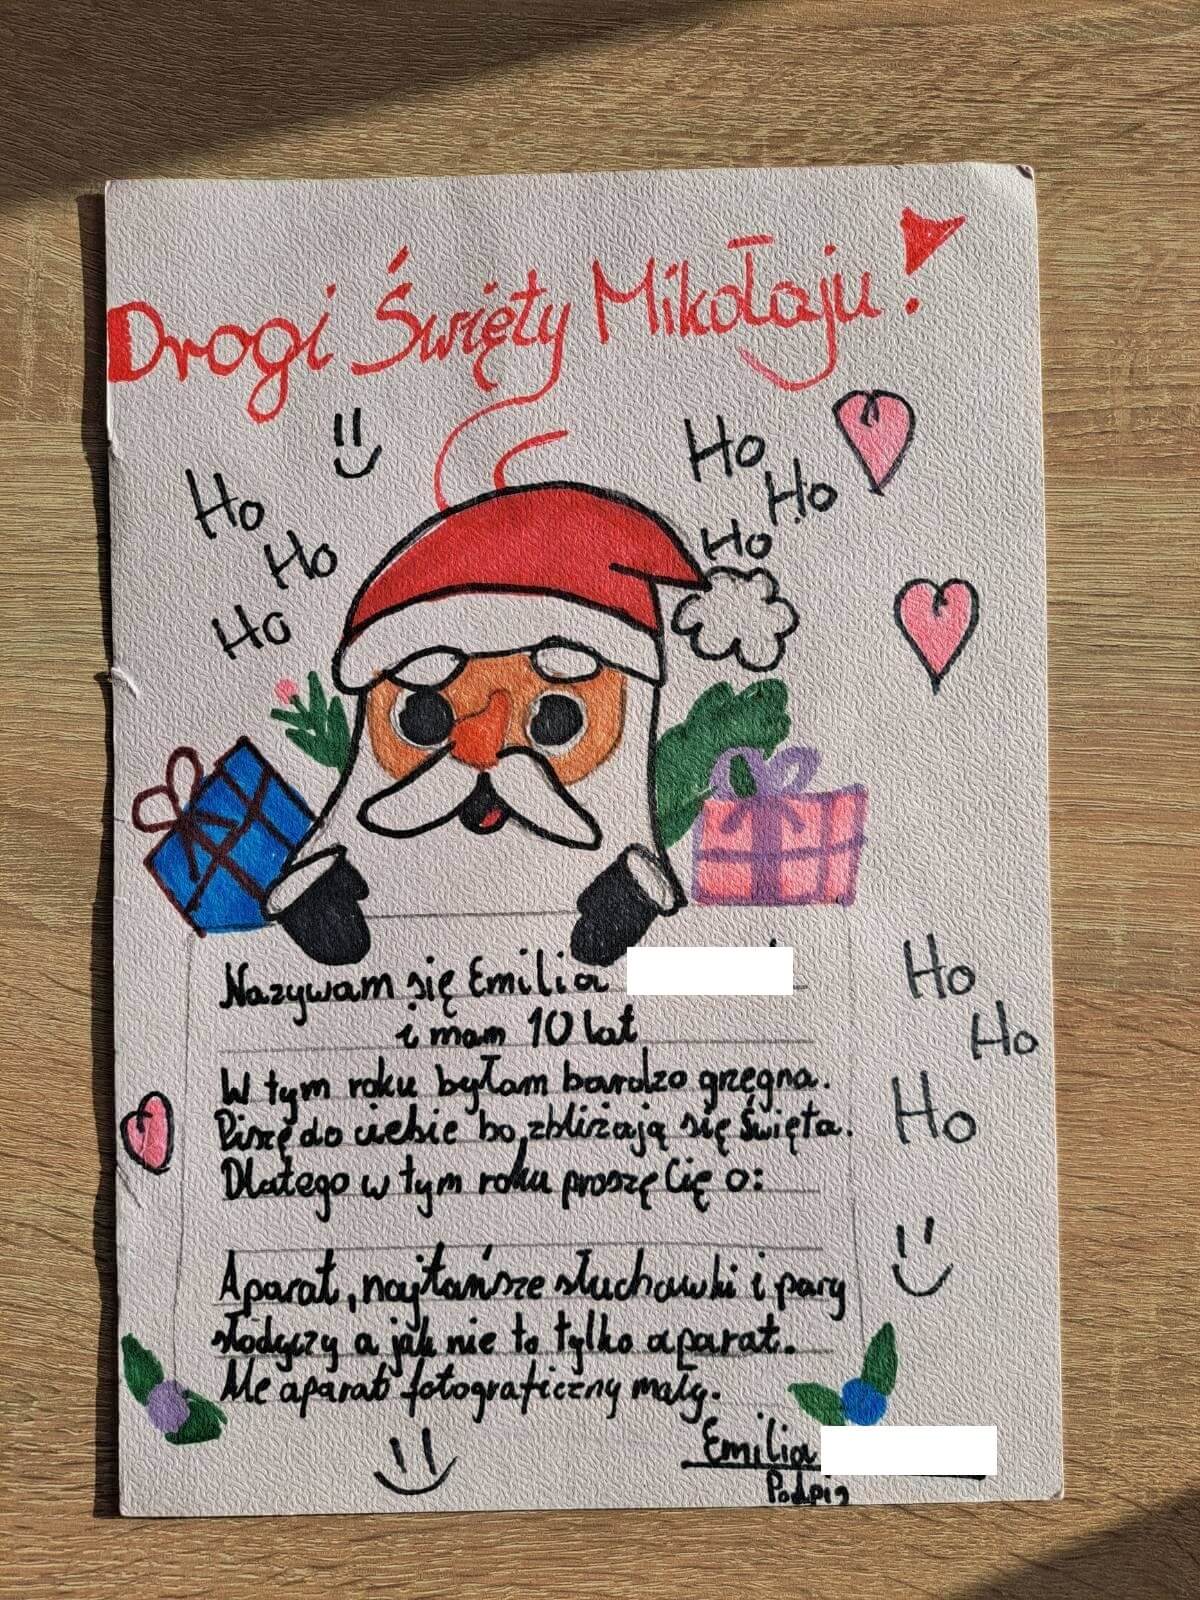 Drogi Święty Mikołaju!
Ho
Ho
Ho
Ho
Ho
Ho
Nazywam się Emilia
i mam 10 lat
W tym roku byłam bardzo grzęgna.
Piszę do ciebie bo, zbliżają się Święta.
Dlatego w tym roku proszę Cię o:
Ho
Ho
Ho
Aparat, najtańsze słuchawki i pary
słodyczy a jak nie to tylko aparat.
Ale aparat fotograficzny mały.
Emilia
Podpis